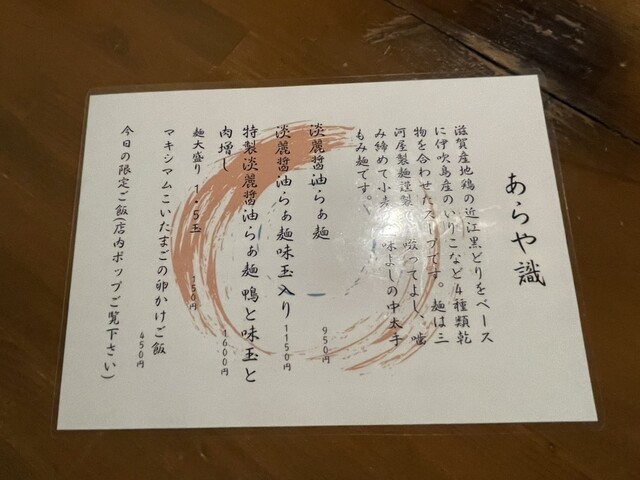 あらや識
滋賀産地鶏の近江黒どりをベース
に伊吹島産のいりこなど4種類乾
物を合わせたスープです。麺は三
河屋製麺謹製 啜ってよし、噛
み締めて小麦 味よしの中太手
もみ麺です。
淡麗醤油らぁ麺
950円
淡麗醤油らぁ麺味玉入り
1150円
特製淡麗醤油らぁ麺 鴨と味玉と
肉増し
1600円
麺大盛り 1.5玉
150円
マキシマムこいたまごの卵かけご飯
450円
今日の限定ご飯(店内ポップご覧下さい)